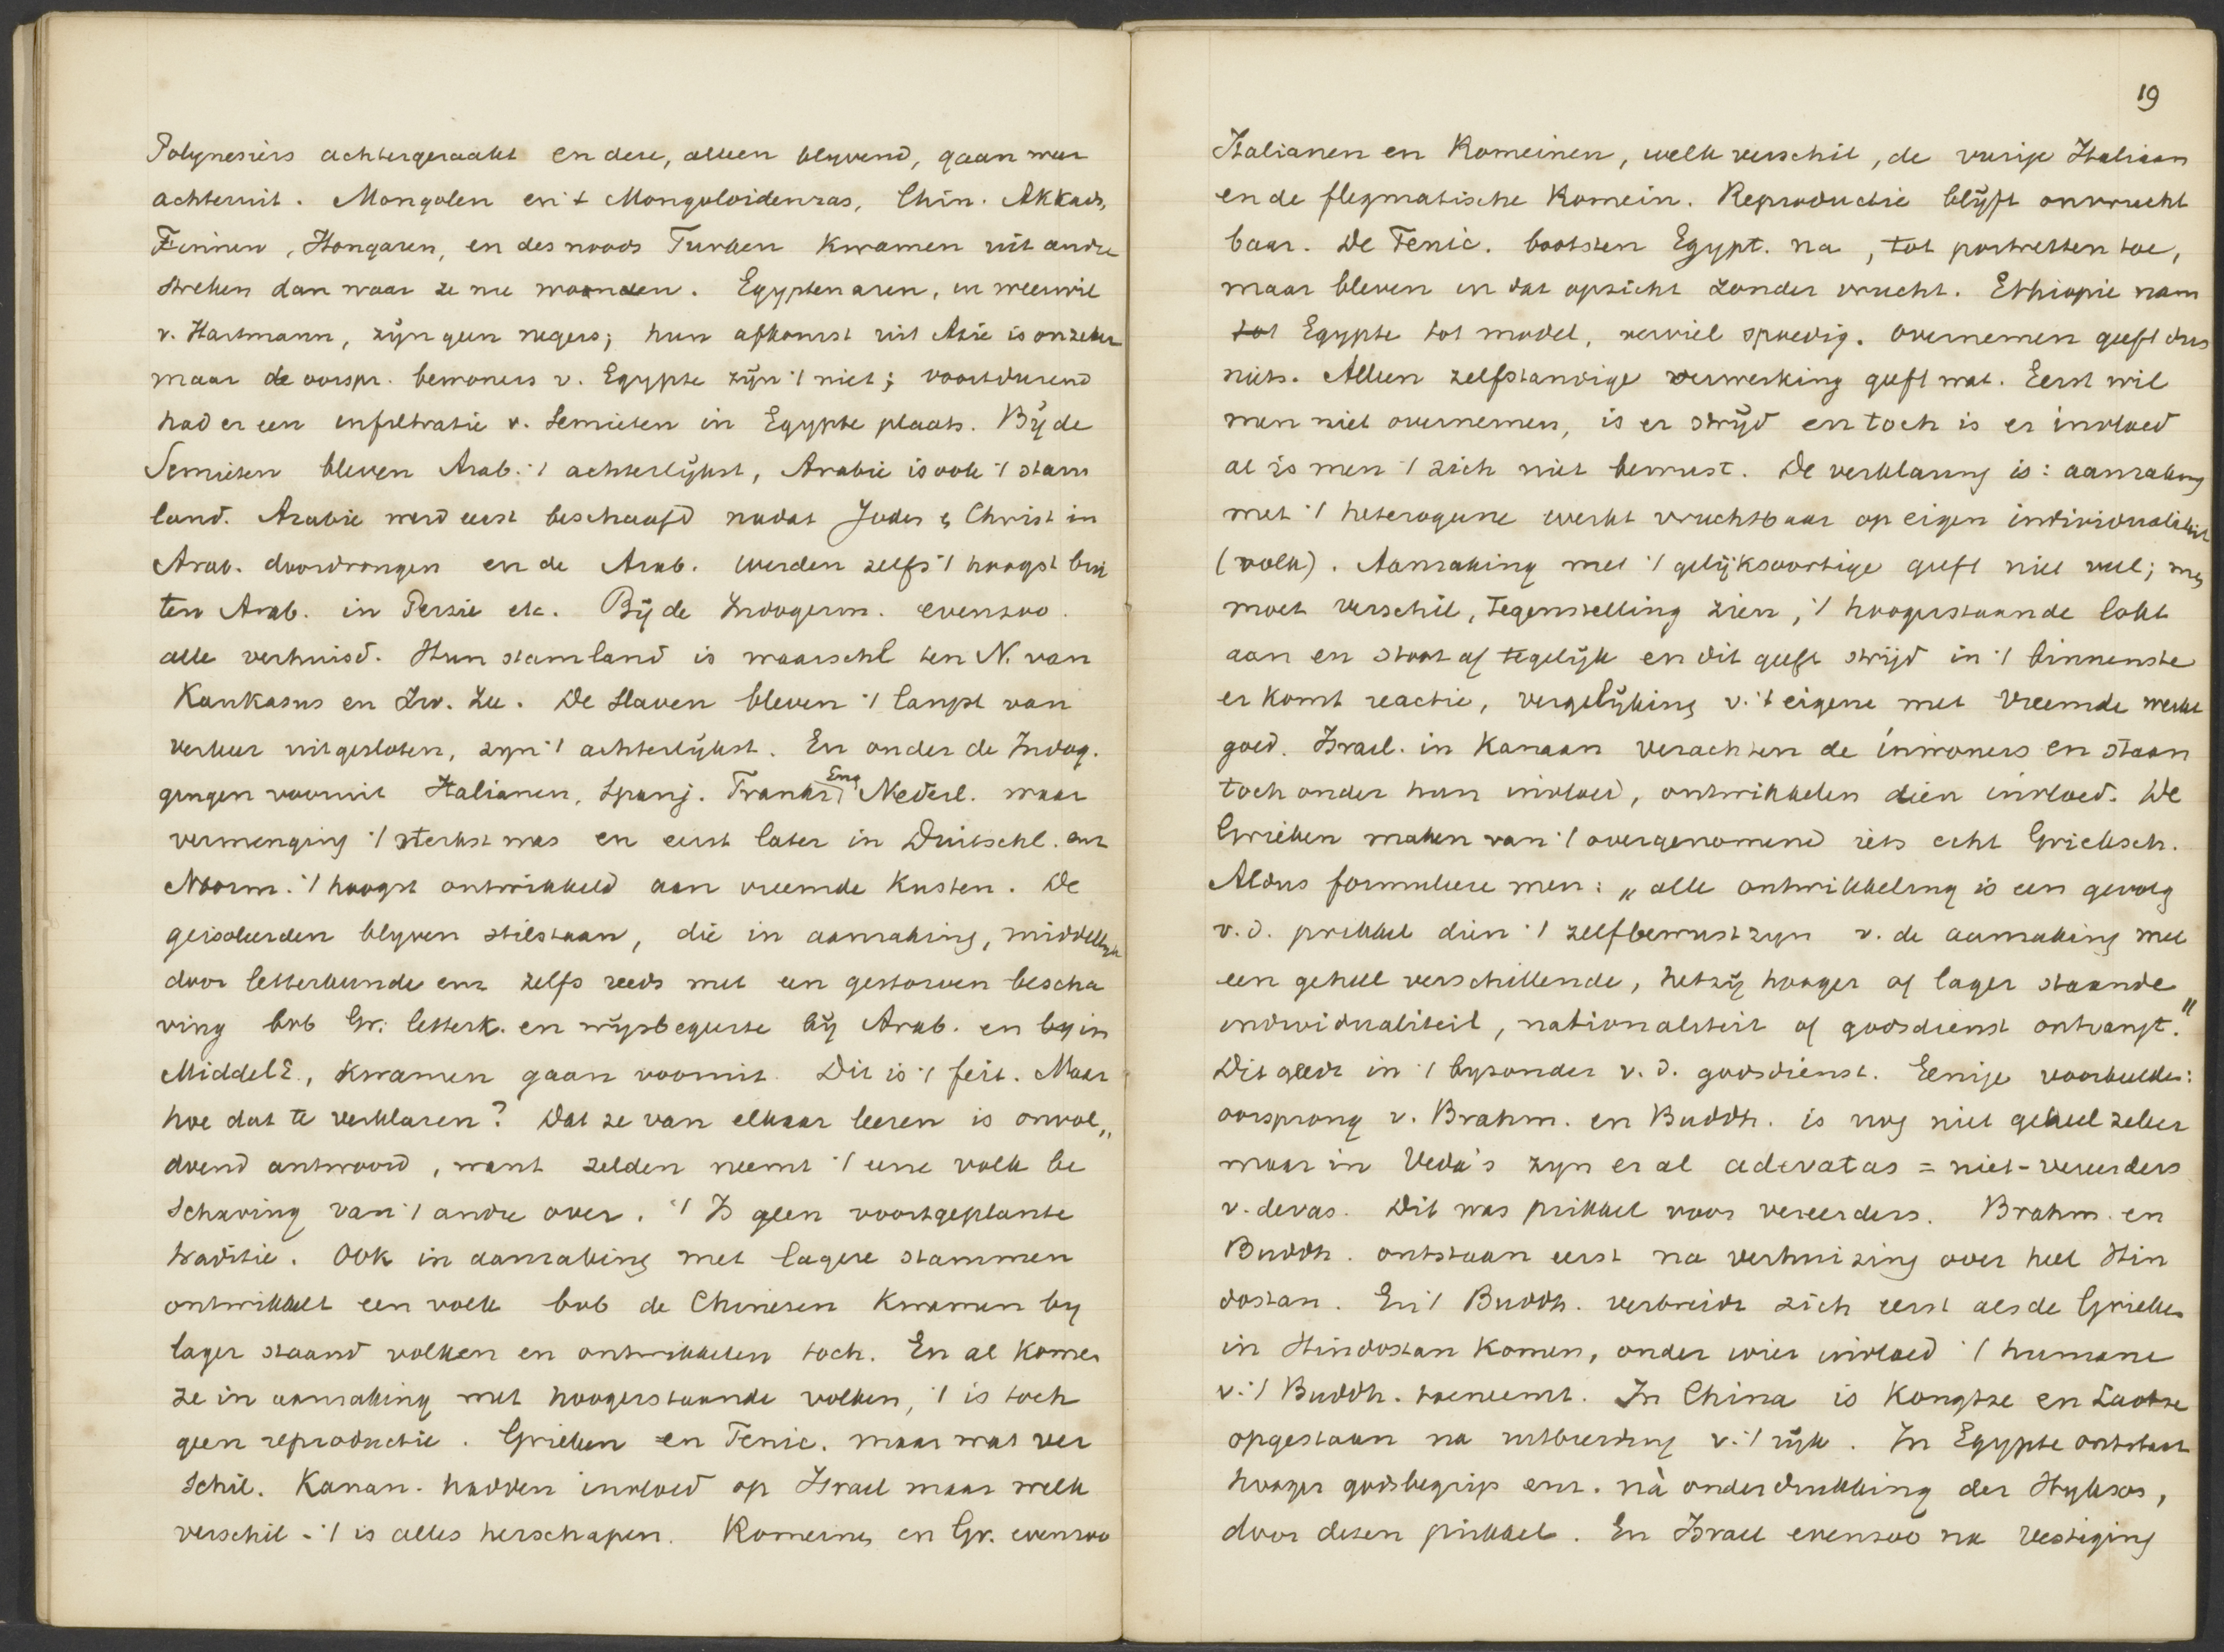 Polynesiërs achtergeraakt en deze, alleen blyvend, gaan weer
achteruit. Mongolen en 't Mongoloidenras, Chin. Akkads,
Finnen, Hongaren, en des noods Turken kwamen uit andre
streken dan waar ze nu woonden. Egyptenaren, in weerwil
v. Hartmann, zijn geen negers; hun afkomst uit Azie is onzeker
maar de oorspr. bewoners v. Egypte zijn 't niet; voortdurend
had er een infiltratie v. Semieten in Egypte plaats. Bij de
Semieten bleven Arab. 't achterlijkst, Arabie is ook 't stam
land. Arabie werd eerst beschaafd nadat Joden & Christ in
Arab. doordrongen en de Arab. werden zelfs 't hoogst bui
ten Arab. in Perzie etc. Bij de Indogerm. evenzoo.
alle verhuisd. Hun stamland is waarschl ten N. van
Kaukasus en Zw. Zee. De Slaven bleven 't langst van
verkeer uitgesloten, zyn 't achterlijkst. En onder de Indog.
gingen vooruit Italianen, Spanj. Frankr. Eng Nederl. waar
vermenging 't sterkst was en eerst later in Duitschl. enz
Noorm. 't hoogst ontwikkeld aan vreemde kusten. De
geisoleerden blyven stilstaan, die in aanraking, middellyk
door letterkunde enz zelfs reeds met een gestorven bescha
ving bvb Gr. letterk. en wijsbegeerte bij Arab. en by in
MiddelE., kwamen gaan vooruit. Dit is 't feit. Maar
hoe dat te verklaren? Dat ze van elkaar leeren is onvol„
doend antwoord, want zelden neemt 't eene volk be
schaving van 't andre over. 't Is geen voortgeplante
traditie. Ook in aanraking met lagere stammen
ontwikkelt een volk bvb de Chinezen kwamen by
lager staand volken en ontwikkelen toch. En al komen
ze in aanraking met hoogerstaande volken, 't is toch
geen reproductie. Grieken en Fenic. maar wat ver
schil. Kanan. hadden invloed op Israel maar welk
verschil - 't is alles herschapen. Romeinen en Gr. evenzoo
19
Italianen en Romeinen, welk verschil, de vurige Italiaan
en de flegmatische Romein. Reproductie blijft onvrucht
baar. De Fenic. bootsten Egypt. na, tot portretten toe,
maar bleven in dat opzicht zonder vrucht. Ethiopie nam
tot Egypte tot model, verviel spoedig. Overnemen geeft dus
niets. Alleen zelfstandige verwerking geeft wat. Eerst wil
men niet overnemen, is er strijd en toch is er invloed
al is men 't zich niet bewust. De verklaring is: aanraking
met 't heterogeene werkt vruchtbaar op eigen individualiteit
(volk). Aanraking met 't gelijksoortige geeft niet veel; men
moet verschil, tegenstelling zien, 't hoogerstaande lokt
aan en stoot af tegelijk en dit geeft strijd in 't binnenste
er komt reactie, vergelijking v. 't eigene met vreemde werkt
goed. Israel. in Kanaan verachten de inwoners en staan
toch onder hun invloed, ontwikkelen dien invloed. De
Grieken maken van 't overgenomend iets echt Grieksch.
Aldus formuleere men: „alle ontwikkeling is een gevolg
v.d. prikkel dien 't zelfbewustzyn v. de aanraking met
een geheel verschillende, hetzij hooger of lager staande
individualiteit, nationaliteit of godsdienst ontvangt."
Dit geldt in 't byzonder v.d. godsdienst. Eenige voorbeelden:
oorsprong v. Brahm. en Buddh. is nog niet geheel zeker
maar in Veda's zyn er al adevatas = niet-vereerders
v. devas. Dit was prikkel voor vereerders. Brahm. en
Buddh. ontstaan eerst na verhuizing over heel Hin
dostan. En 't Buddh. verbreidt zich eerst als de Grieken
in Hindostan komen, onder wier invloed 't humane
v. 't Buddh. toeneemt. In China is Kongtse en Laotse
opgestaan na uitbreiding v. 't rijk. In Egypte ontstaat
hooger godsbegrip enz. nà onderdrukking der Hyksos,
door dezen prikkel. En Israel evenzoo na vestiging